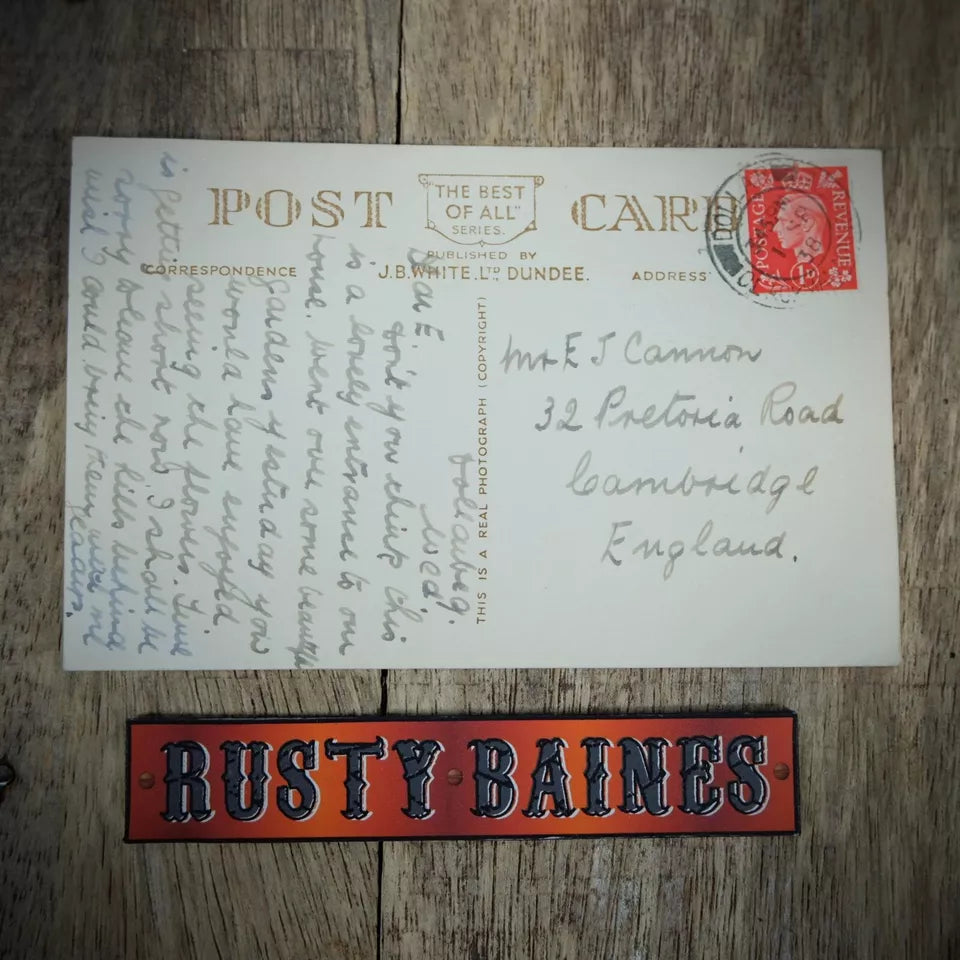 POST CARD
"THE BEST
OF ALL"
SERIES.
PUBLISHED BY
J.B.WHITE. LTD DUNDEE.
CORRESPONDENCE
ADDRESS
THIS IS A REAL PHOTOGRAPH (COPYRIGHT)
POSTAGE
REVENUE
1D
38
Mr E J Cannon
32 Pretoria Road
Cambridge
England.
Wed.
Dear E.
Don't you think this
is a lovely entrance to our
house. Went over some beautiful
Gardens yesterday you
would have enjoyed
seeing the flowers. Time
is getting short now. I shall be
sorry to leave the hills behind
wish I could bring them with me
RUSTY BAINES